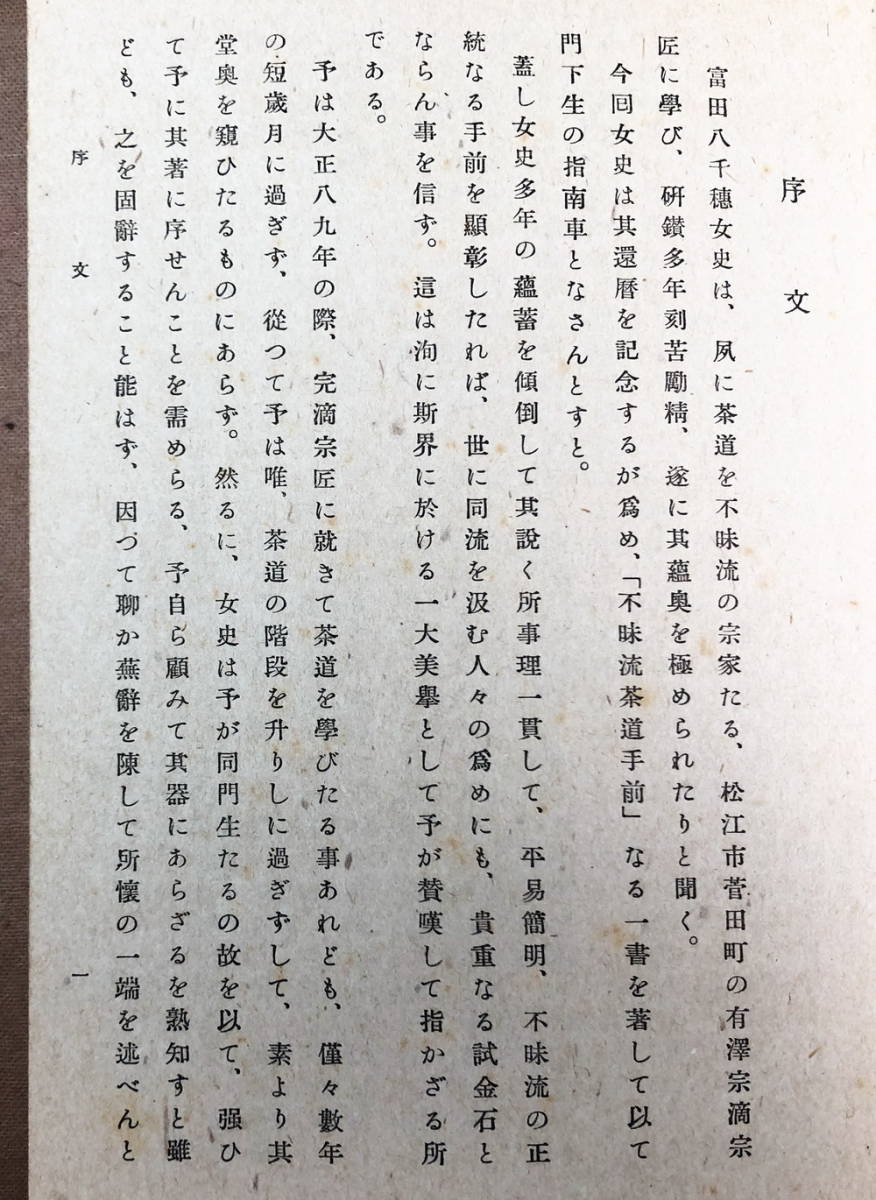 序文
富田八千穗女史は、夙に茶道を不昧流の宗家たる、松江市菅田町の有澤宗滴宗
匠に學び、硏鑽多年刻苦勵精、遂に其蘊奥を極められたりと聞く。
今囘女史は其還曆を記念するが爲め、「不昧流茶道手前」なる一書を著して以て
門下生の指南車となさんとすと。
蓋し女史多年の蘊蓄を傾倒して其說く所事理一貫して、平易簡明、不昧流の正
統なる手前を顯彰したれば、世に同流を汲む人々の爲めにも、貴重なる試金石と
ならん事を信ず。這は洵に斯界に於ける一大美擧として予が賛嘆して指かざる所
である。
予は大正八九年の際、完滴宗匠に就きて茶道を學びたる事あれども、僅々數年
の短歲月に過ぎず、從つて予は唯、茶道の階段を升りしに過ぎずして、素より其
堂奥を窺ひたるものにあらず。然るに、女史は予が同門生たるの故を以て、强ひ
て予に其著に序せんことを需めらる、予自ら顧みて其器にあらざるを熟知すと雖
ども、之を固辭すること能はず、因つて聊か蕪辭を陳して所懷の一端を述べんと
序文 一